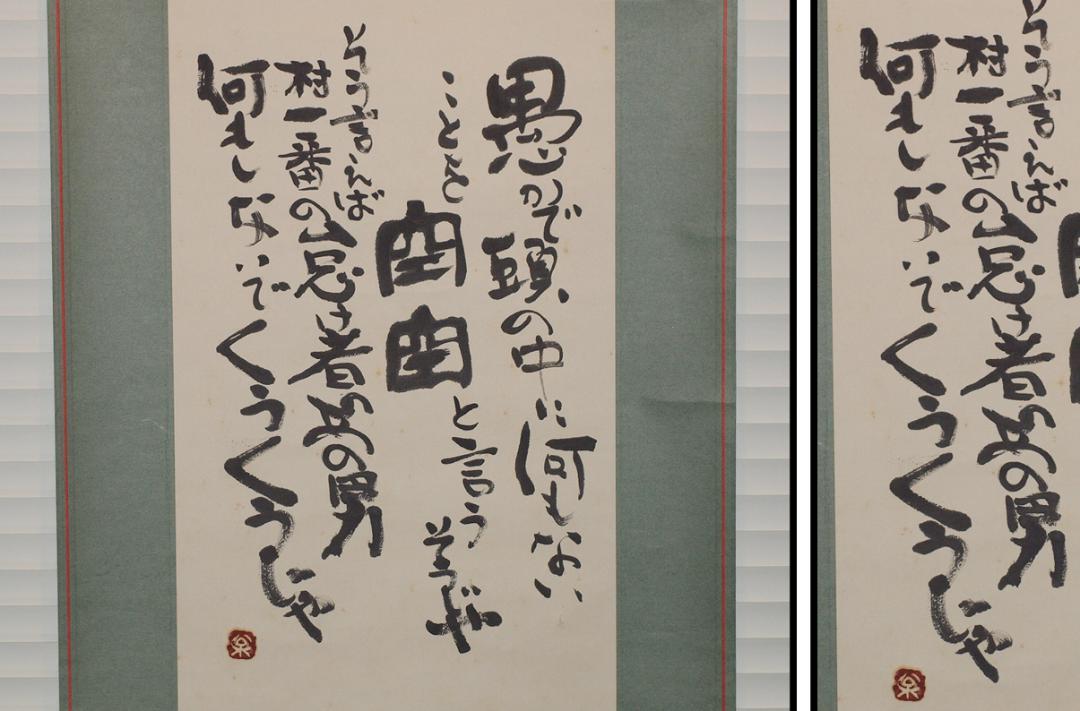 愚かで頭の中に何もない
ことを空空と言うそうじゃ
そう言えば
村一番の怠け者あの男
何もしないでくうくうじゃ
そう言えば
村一番の怠け者あの男
何もしないでくうくうじゃ